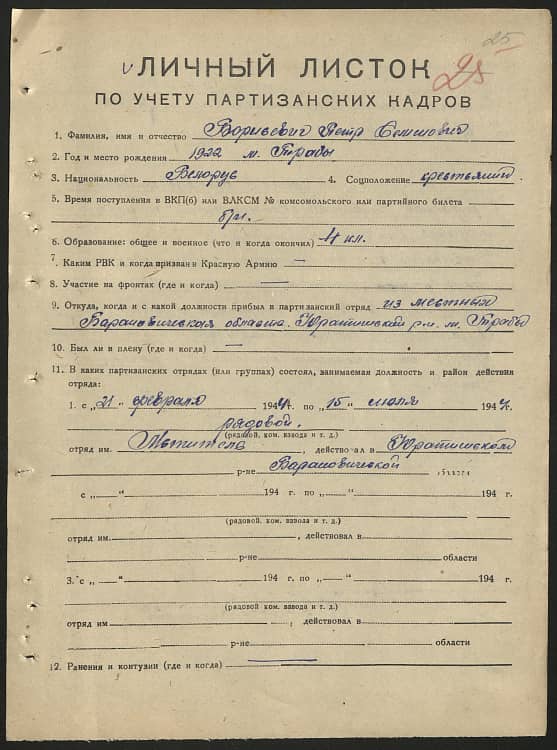 25
25
ЛИЧНЫЙ ЛИСТОК
ПО УЧЕТУ ПАРТИЗАНСКИХ КАДРОВ
1. Фамилия, имя и отчество Борисевич Петр
2. Год и место рождения 1922 м. Трабы
3. Национальность Белорус 4. Соцположение
5. Время поступления в ВКП(б) или ВЛКСМ № комсомольского или партийного билета
б/п.
6. Образование: общее и военное (что и когда окончил) 4 кл.
7. Каким РВК и когда призван в Красную Армию —
8. Участие на фронтах (где и когда) —
9. Откуда, когда и с какой должности прибыл в партизанский отряд из местных
Барановическая область. Юратишский р-н. м. Трабы
10. Был ли в плену (где и когда) —
11. В каких партизанских отрядах (или группах) состоял, занимаемая должность и район действия
отряда:
1. с „21" февраля 1944 г. по „15" июля 1944 г.
рядовой.
(рядовой, ком. взвода и т. д.)
отряд им. Мститель, действовал в Юратишском
р-не Барановической области
с „—" 194 г. по „—" 194 г.
(рядовой, ком. взвода и т. д.)
отряд им. , действовал в
р-не области
3. с „—" 194 г. по „—" 194 г.
(рядовой, ком. взвода и т. д.)
отряд им. , действовал в
р-не области
12. Ранения и контузии (где и когда) —